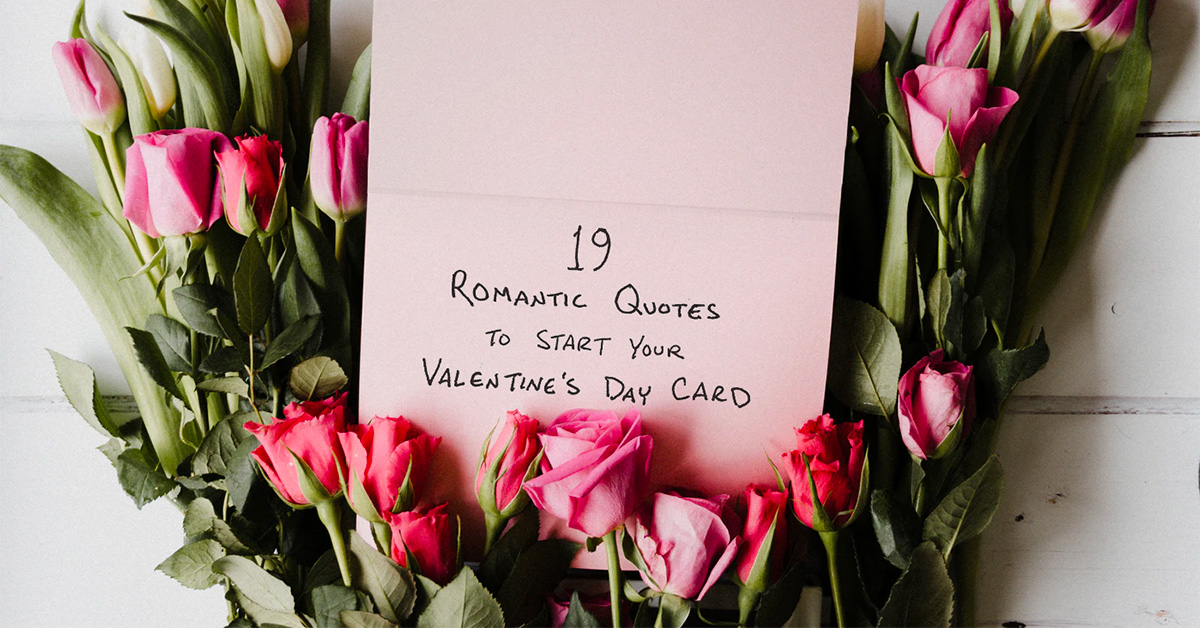 19
ROMANTIC QUOTES
TO START YOUR
VALENTINE'S DAY CARD